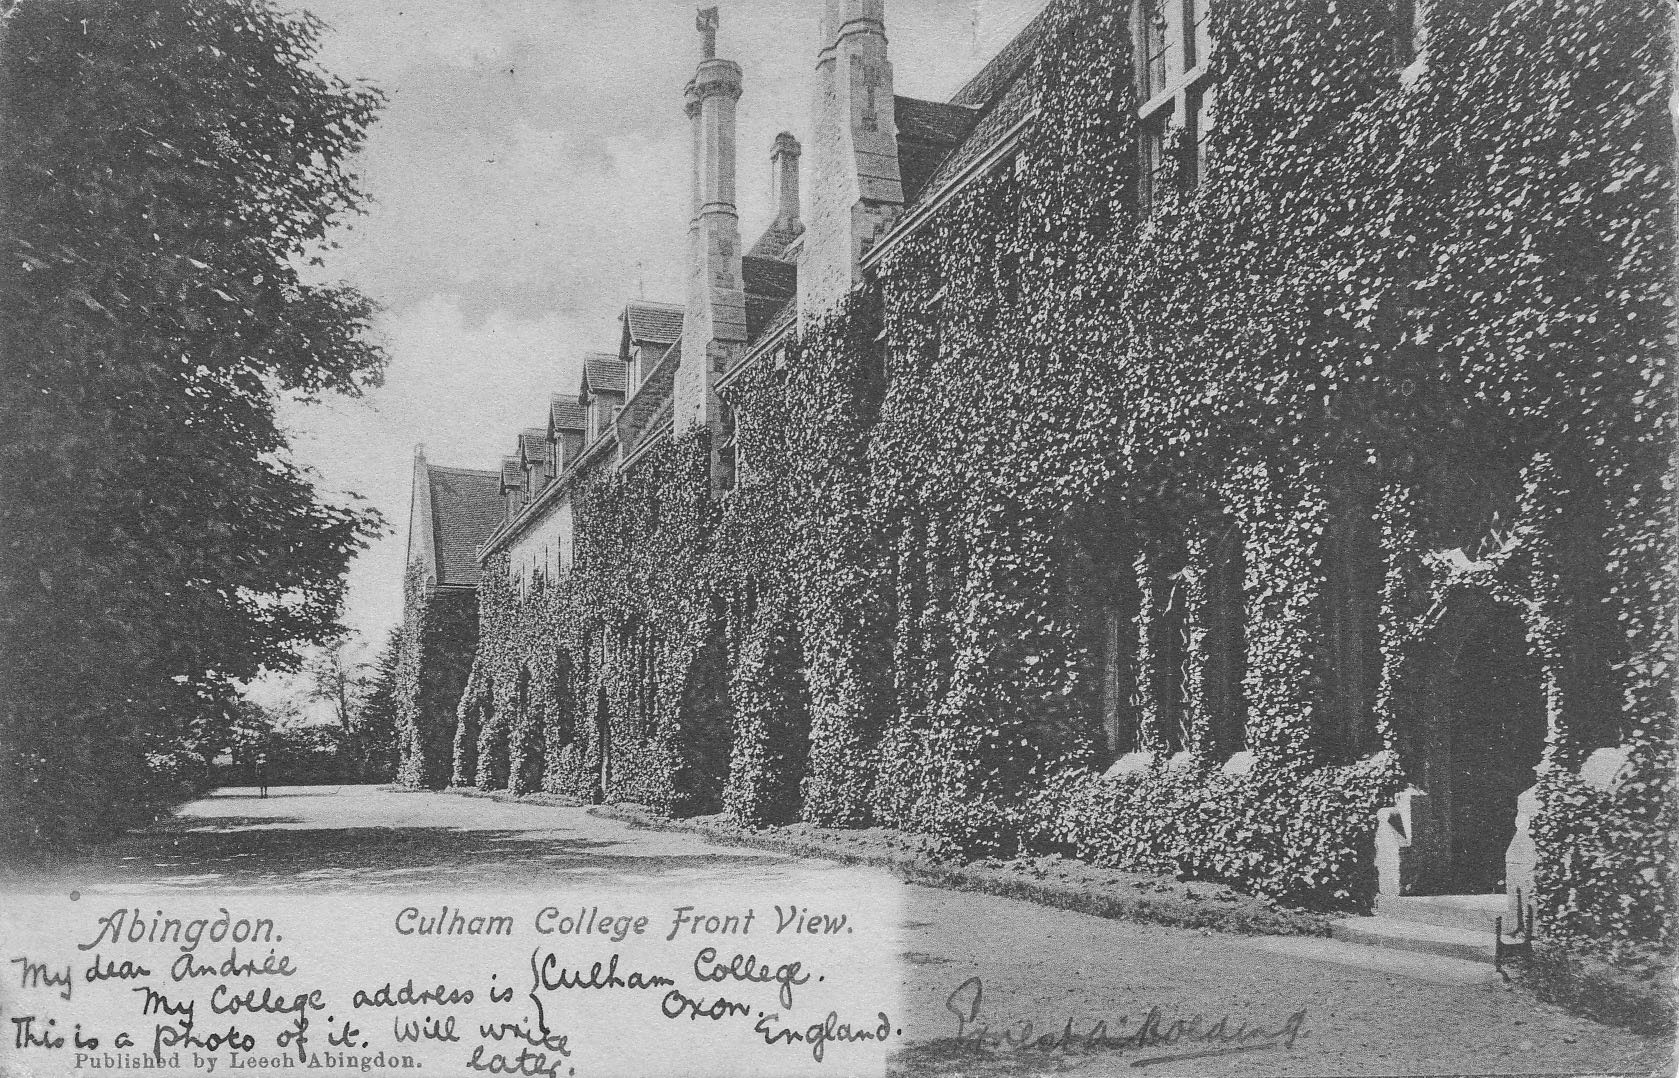 Abingdon. Culham College Front View.
My dear Andrée
My College address is { Culham College.
Oxon.
England.
This is a photo of it. Will write
later.
Published by Leech Abingdon.